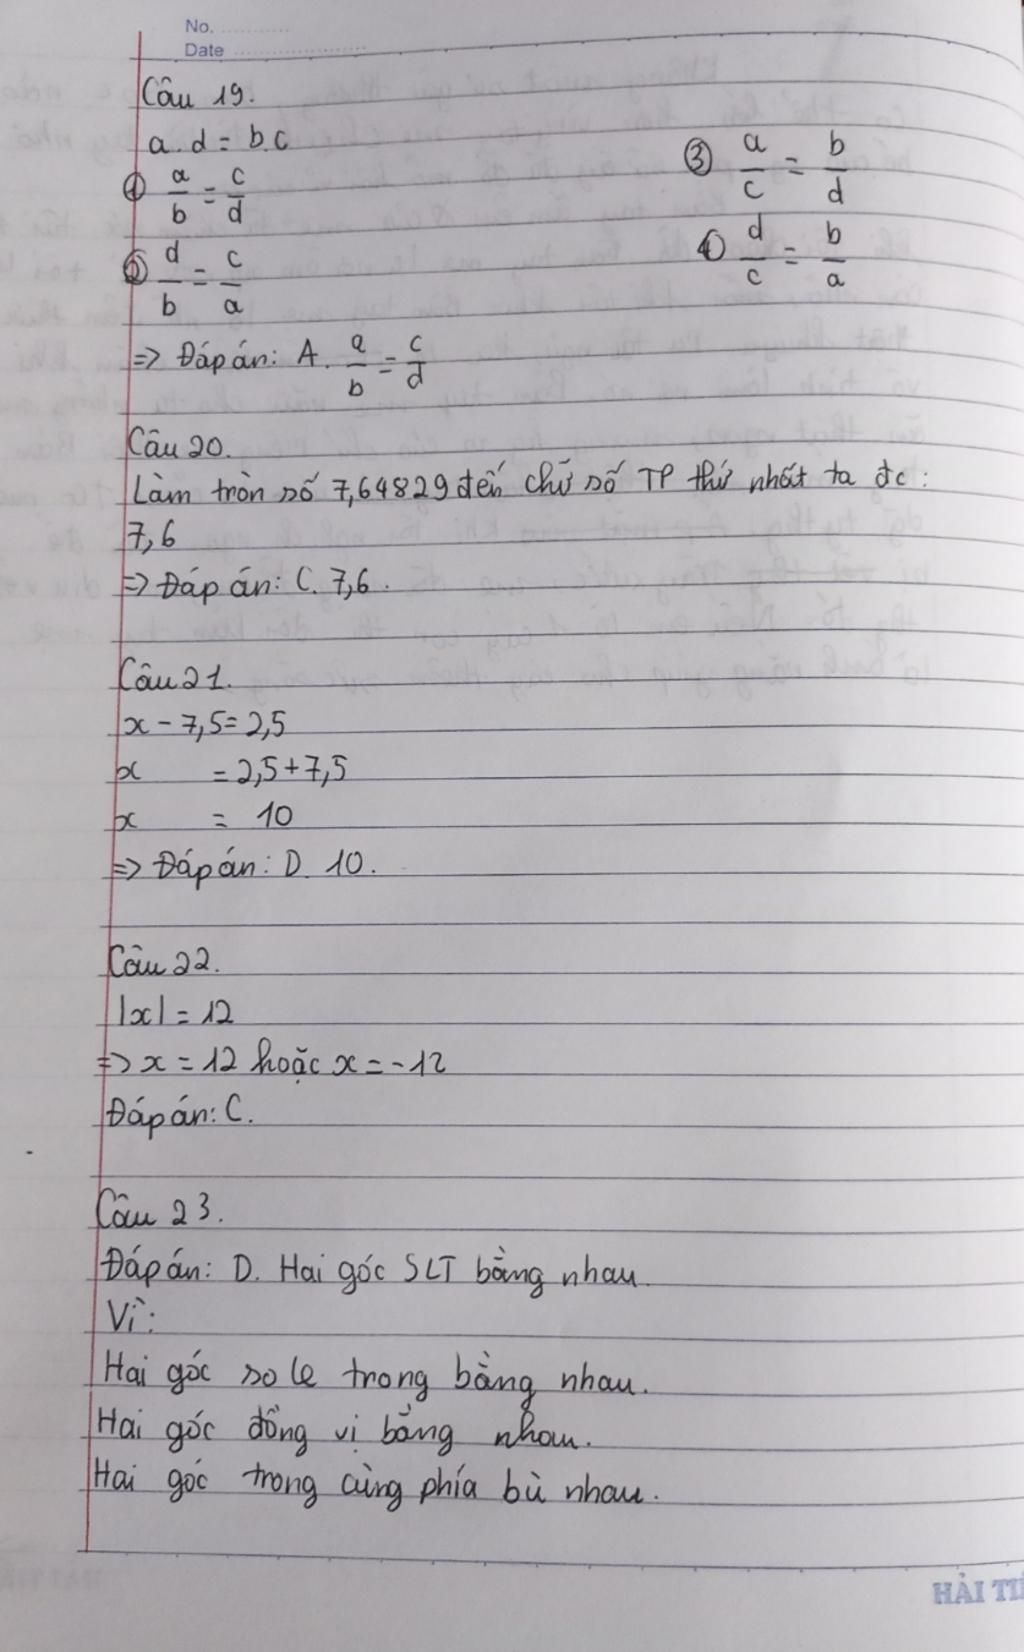 No. ............
Date ........................
Câu 19.
a.d = b.c
① a/b = c/d
② d/b = c/a
③ a/c = b/d
④ d/c = b/a
=> Đáp án: A. a/b = c/d
Câu 20.
Làm tròn số 7,64829 đến chữ số TP thứ nhất ta đc:
7,6
=> Đáp án: C. 7,6.
Câu 21.
x - 7,5 = 2,5
x = 2,5 + 7,5
x = 10
=> Đáp án: D. 10.
Câu 22.
|x| = 12
=> x = 12 hoặc x = -12
Đáp án: C.
Câu 23.
Đáp án: D. Hai góc SLT bằng nhau.
Vì:
Hai góc so le trong bằng nhau.
Hai góc đồng vị bằng nhau.
Hai góc trong cùng phía bù nhau.
HẢI